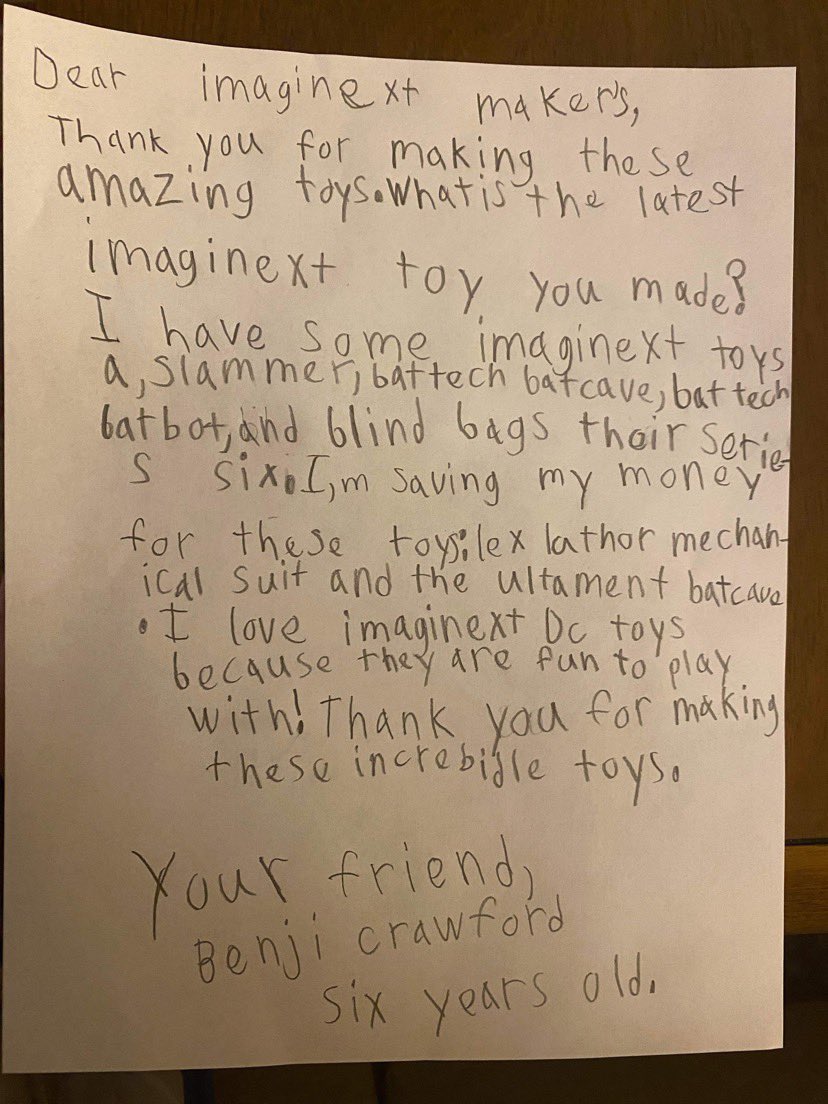 Dear imaginext maker's,
Thank you for making these
amazing toys.What is the latest
imaginext toy you made?
I have some imaginext toys
a,slammer,battech batcave,battech
batbot,and blind bags their serie-
s six.I,m saving my money
for these toys:lex lathor mechan-
ical suit and the ultament batcave
.I love imaginext Dc toys
because they are fun to play
with!Thank you for making
these increbidle toys.
Your friend,
Benji crawford
six years old.